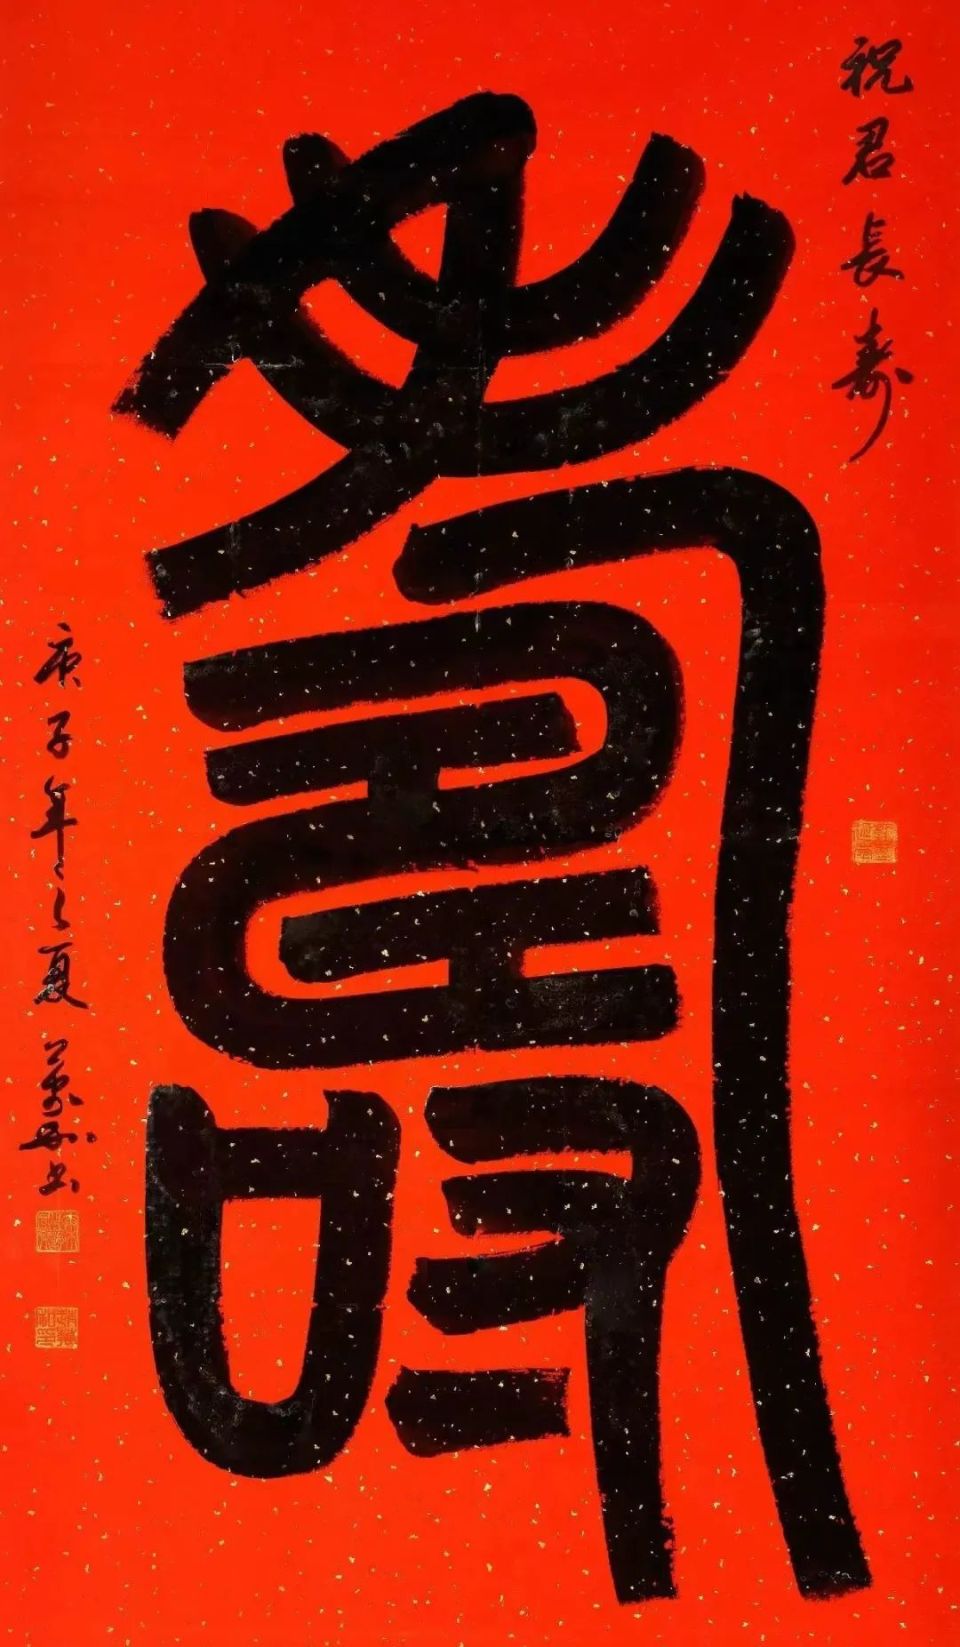 祝君長寿
壽
庚子年之夏